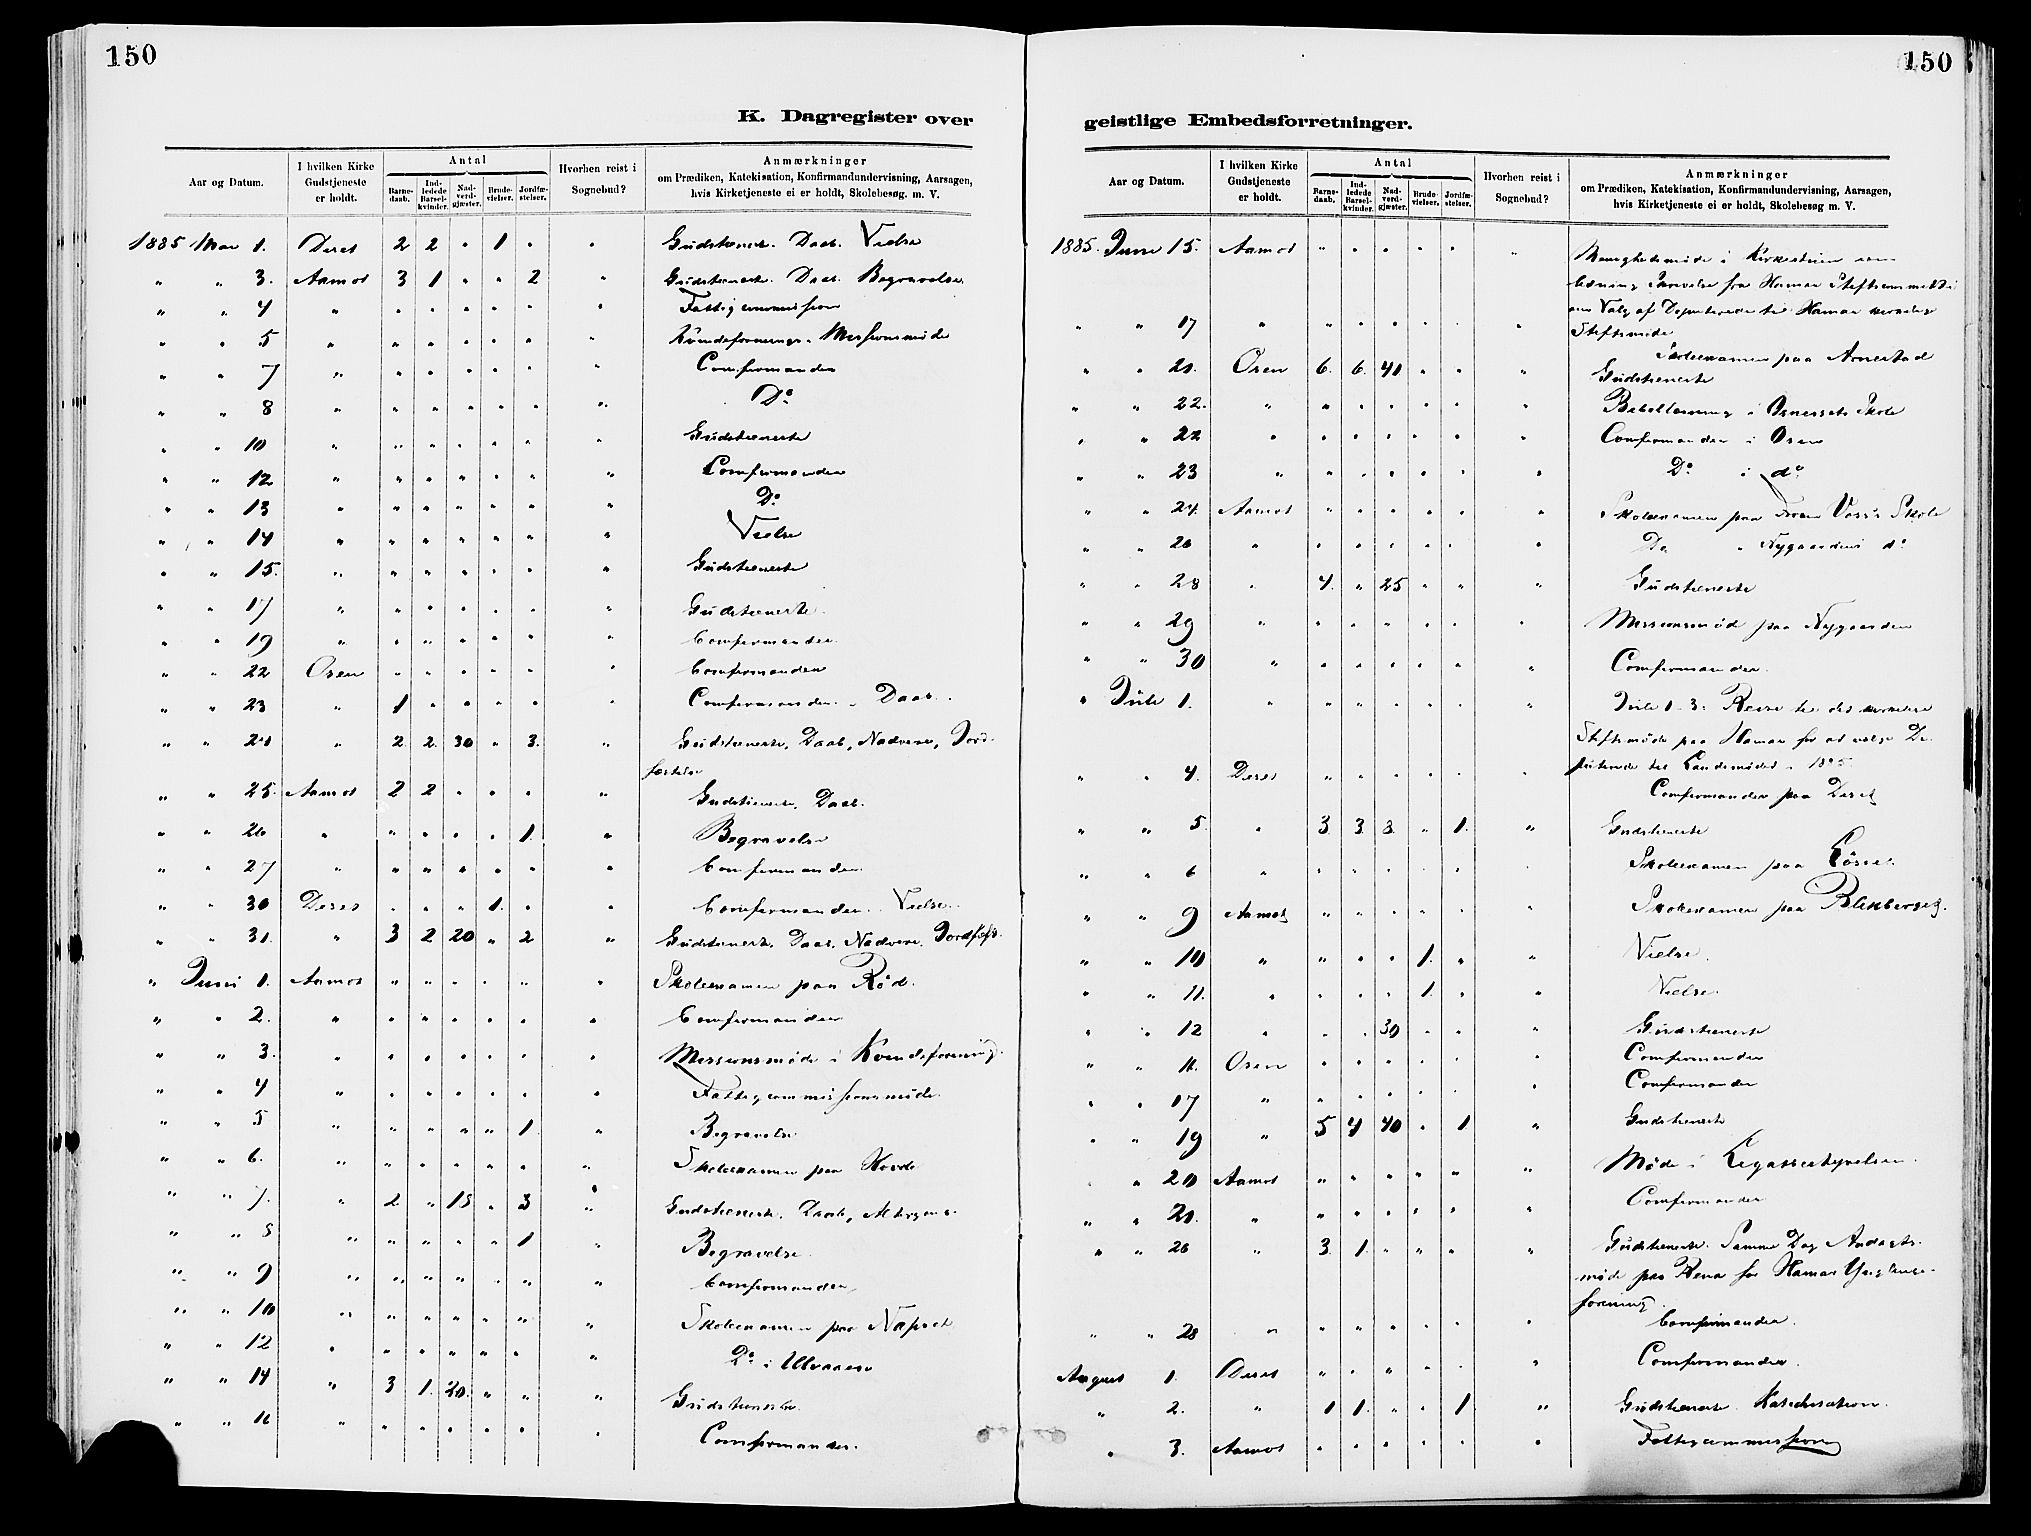 150
K. Dagregister over
Aar og Datum. I hvilken Kirke Gudstjeneste er holdt. Antal Hvorhen reist i Sognebud? Anmærkninger
Barnedaab. Indledede Barselkvinder. Nadverdgjæster. Brudevielser. Jordfæstelser. om Prædiken, Katekisation, Konfirmandundervisning, Aarsagen, hvis Kirketjeneste ei er holdt, Skolebesøg. m. V.
1885 Mai 1. Deset 2 2 " 1 " " Gudstieneste. Daab. Vielse
" " 3. Aamot 3 1 " " 2 " Gudstieneste. Daab. Begravelse
" " 4 " " " " " " " Fattigcommission
" " 5 " " " " " " " Kvindeforenings. Missionsmøde
" " 7 " " " " " " " Confirmander
" " 8 " " " " " " " Do
" " 10 " " " " " " " Gudstieneste
" " 12 " " " " " " " Confirmander
" " 13 " " " " " " " Do
" " 14 " " " " " " " Vielse
" " 15. " " " " " " " Gudstieneste
" " 17 " " " " " " " Gudstieneste.
" " 19 " " " " " " " Confirmander.
" " 22 Osen " " " " " " Confirmander
" " 23 " 1 " " " " " Confirmander. " Daab.
" " 24 " 2. 2. 30 " 3. " Gudstieneste, Daab, Nadvere, Jord-
fæstelse
" " 25. Aamot 2 2 " " " " Gudstieneste, Daab.
" " 26 " " " " " 1. " Begravelse
" " 27 " " " " " " " Confirmander.
" " 30 Deset " " " 1. " " Confirmander. Vielse.
" " 31. " 3 2 20 " 2 " Gudstieneste, Daab, Nadvere, Jordfæst.
" Juni 1. Aamot " " " " " " Skoleexamen paa Rød.
" " 2. " " " " " " " Confirmander
" " 3. " " " " " " " Missionsmøde i Kvindeforening.
" " 4 " " " " " " " Fattigcommissionsmøde.
" " 5 " " " " " 1. " Begravelse
" " 6. " " " " " " " Skoleexamen paa Hovde
" " 7. " 2 " 18 " 3 " Gudstieneste, Daab, Altergang.
" " 8 " " " " " 1 " Begravelse.
" " 9 " " " " " " " Confirmander,
" " 10 " " " " " " " Skoleexamen paa Næpset
" " 12 " " " " " " " Do i Ulvaaen
" " 14 " 3 1. 20. " " " Gudstieneste.
" " 16 " " " " " " " Confirmander.
150
geistlige Embedsforretninger.
Aar og Datum. I hvilken Kirke Gudstjeneste er holdt. Antal Hvorhen reist i Sognebud? Anmærkninger
Barnedaab. Indledede Barselkvinder. Nadverdgjæster. Brudevielser. Jordfæstelser. om Prædiken, Katekisation, Konfirmandundervisning, Aarsagen, hvis Kirketjeneste ei er holdt, Skolebesøg m. V.
1885. Juni 15. Aamot " " " " " " Menighedsmøde i Kirkestuen
Skrivelse fra Hamar
om Valg af Deputerede til Hamar kirkelige
Stiftsmøde.
" " 17 " " " " " " " Skoleexamen paa Arnestad
" " 21. Osen 6. 6. 40 " " " Gudstieneste
" " 22. " " " " " " " Bibellæsning i Osnessets Skole
" " 22 " " " " " " " Confirmander i Osen
" " 23 " " " " " " " Do i do
" " 24. Aamot " " " " " " Skoleexamen paa Skole
" " 26 " " " " " " " Do " Nygaardens do
" " 28 " 4. " 25 " " " Gudstieneste
" " 29 " " " " " " " Missionsmøde paa Nygaarden
" " 30 " " " " " " " Confirmander.
" Juli 1. " " " " " " " Juli 1-3. Reise til det kirkelige
Stiftsmøde paa Hamar for at vælge De-
puterede til Landsmødet i 1885.
" " 4. Deset " " " " " " Confirmander paa Deset
" " 5. " 3. 3. 3. " 1. " Gudstieneste
" " 6 " " " " " " " Skoleexamen paa
" " 9 Aamot " " " " " " Skoleexamen paa
" " 10 " " " " 1. " " Vielse.
" " 11. " " " " 1. " " Vielse.
" " 12 " " " 30 " " " Gudstieneste
" " 16. Osen " " " " " " Confirmander
" " 17 " " " " " " " Confirmander
" " 19 " 5 4 40 " 1 " Gudstieneste
" " 20 Aamot " " " " " " Møde i Legatbestyrelsen.
" " 21. " " " " " " " Confirmander
" " 26 " 3. 1. " " " " Gudstieneste. Samme Dag Andagts-
møde paa Rena for Hamar Ynglinge-
forening.
" " 28 " " " " " " " Confirmander.
August 1. Deset " " " " " " Confirmander.
" 2. " 1 1. " " 1 " Gudstieneste. Katechisation.
" 3. Aamot " " " " " " Fattigcommission